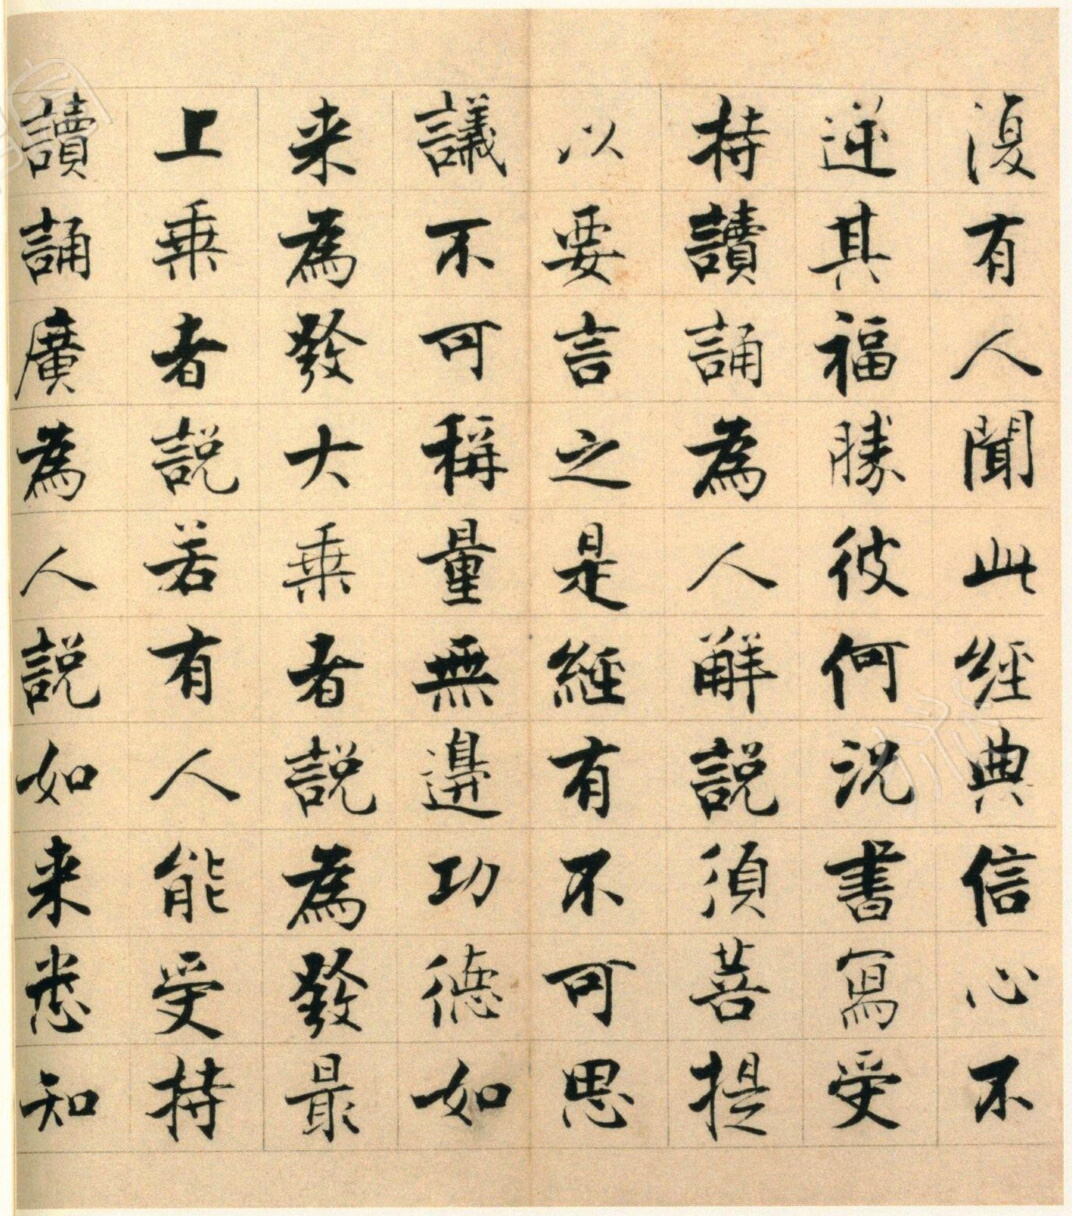 復有人聞此經典信心不
逆其福勝彼何況書寫受
持讀誦為人解說須菩提
以要言之是經有不可思
議不可稱量無邊功德如
来為發大乗者說為發最
上乗者說若有人能受持
讀誦廣為人說如来悉知